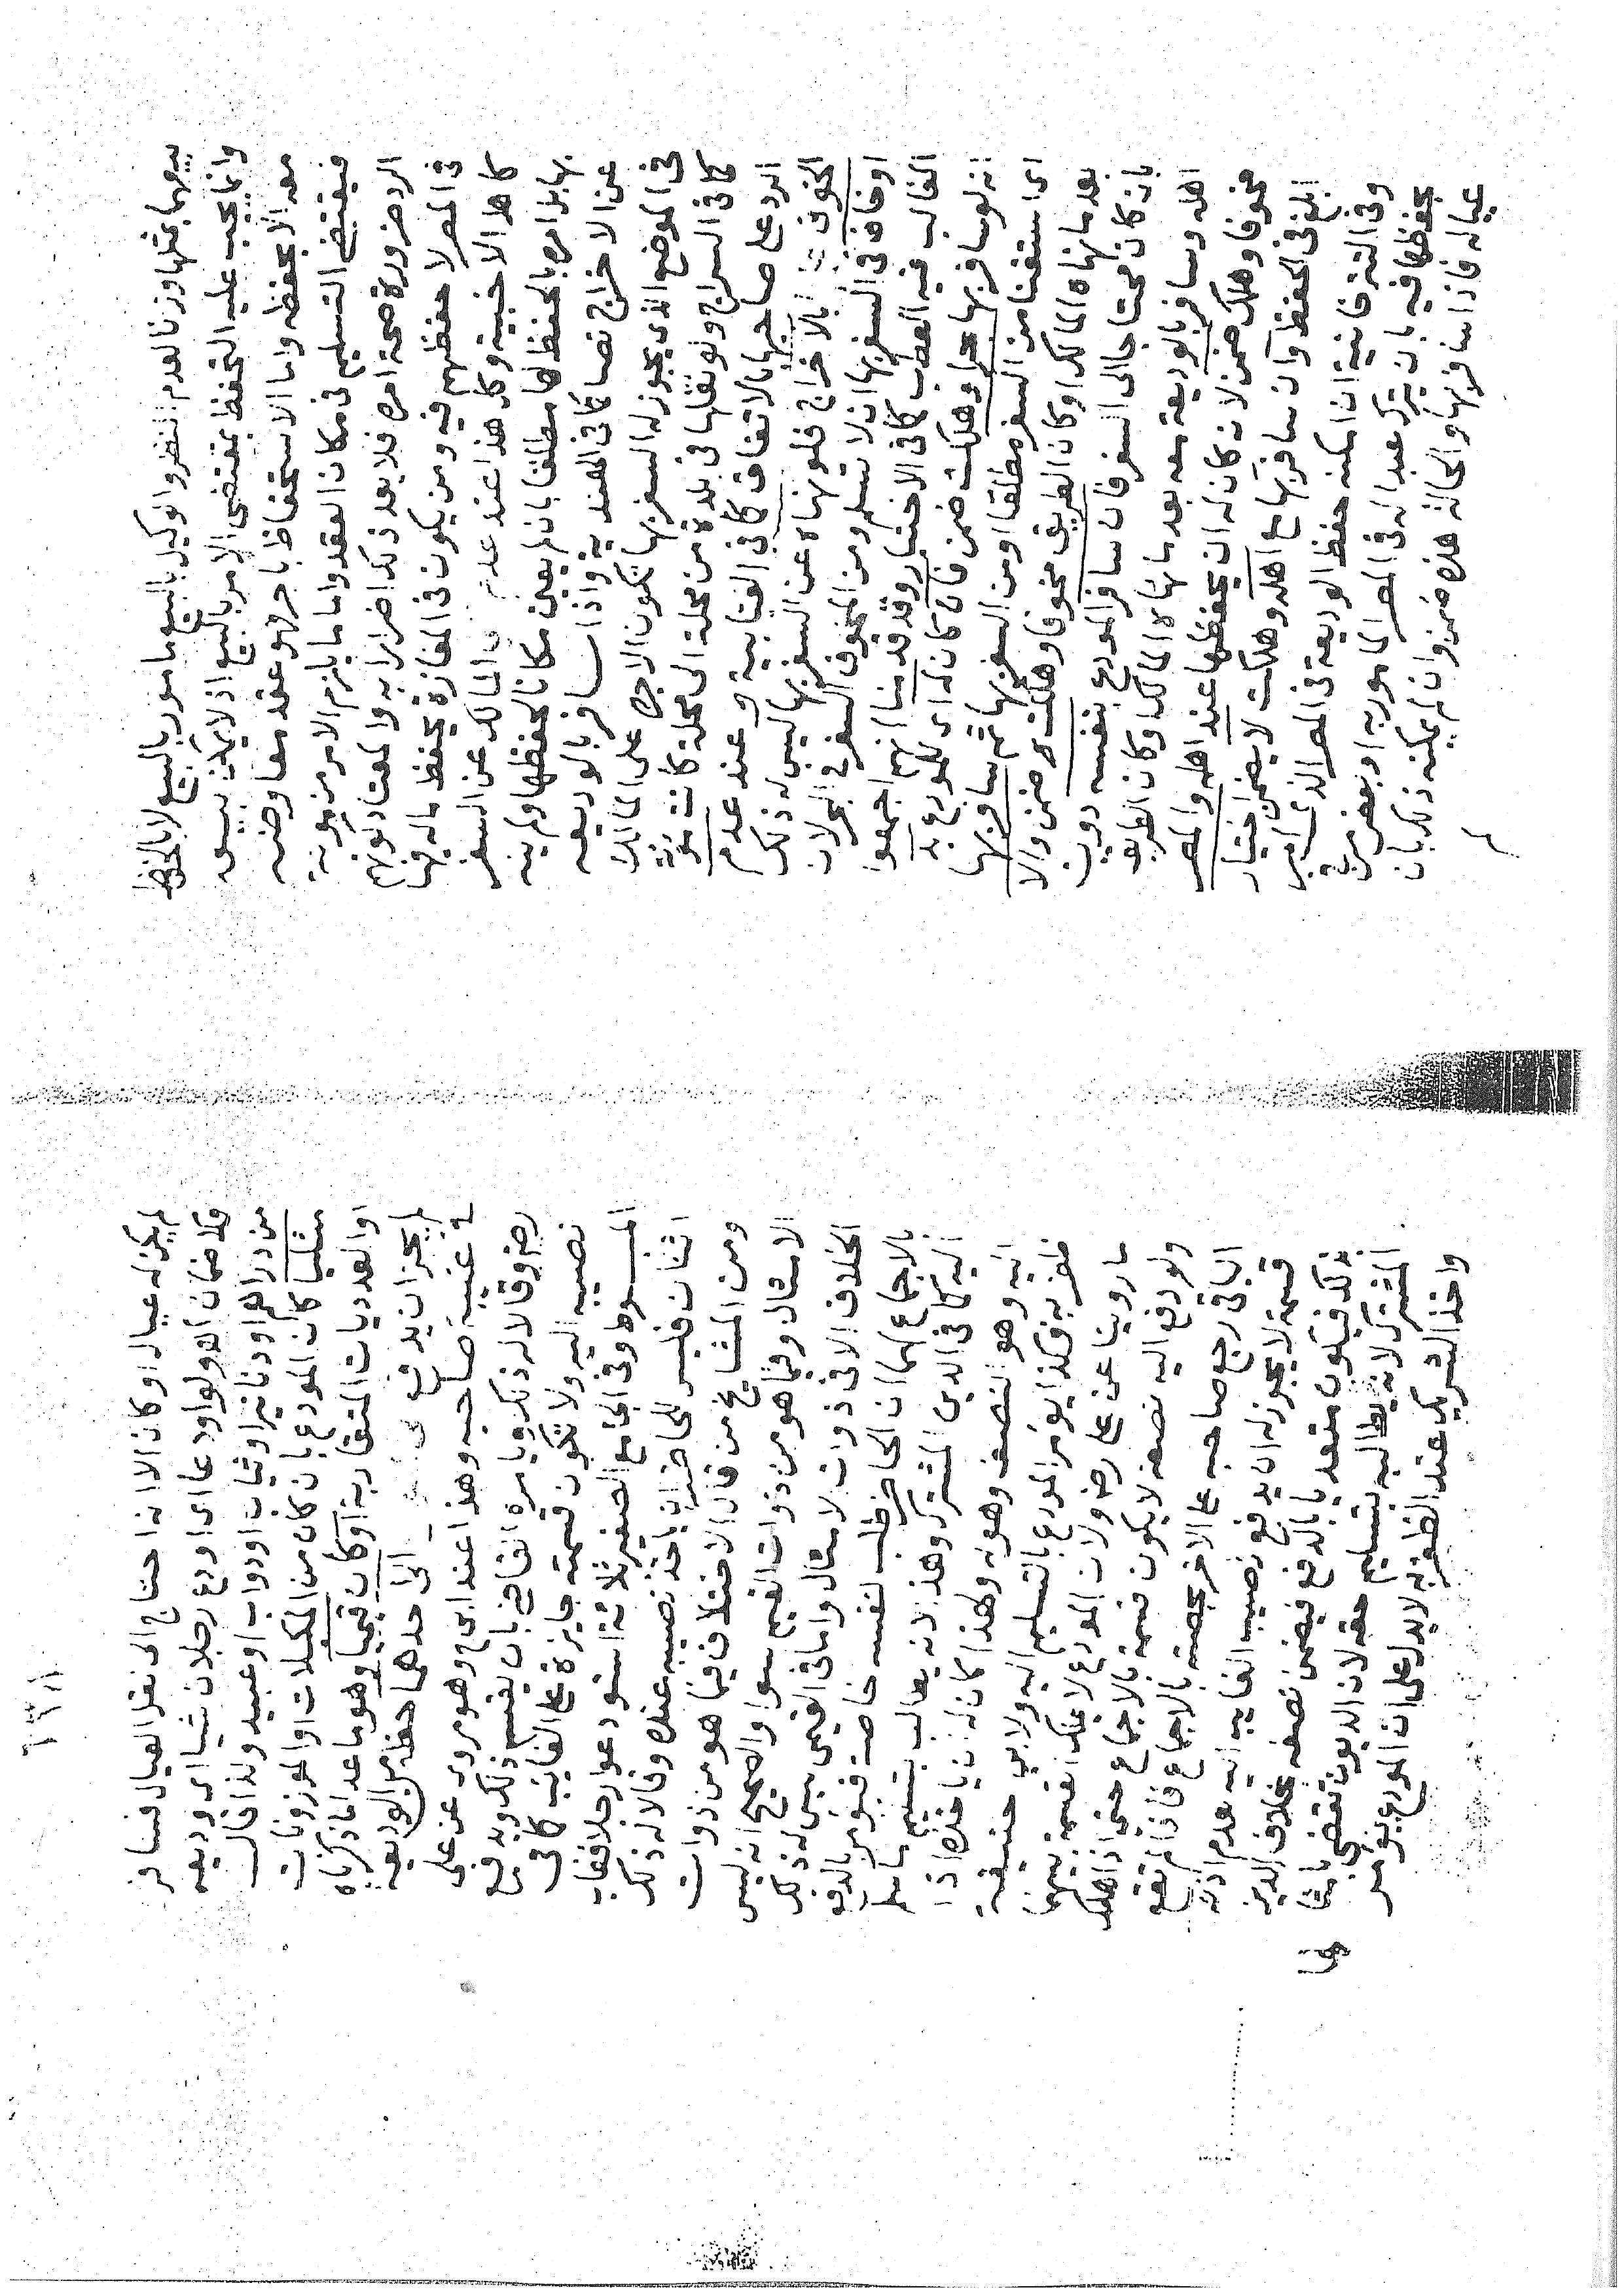 بيعهما بمثلها وزنا لعدم الضرر والوكيل بالبيع مامور بالبيع لا بالحفظ
وانما يجب عليه التحفظ بمقتضى الامر بالبيع اذ لا يمكن بيع
معه الا بحفظه واما الاستحفاظ باجر فهو عقد معاوضة
فيقتضي التسليم في مكان العقد واما ما يلزم الامر من مونة
الرد ضرورة صحة امره فلا يعد ذلك اضرارا به والمعتاد كونهم
في المصر لا حفظهم فيه ومن يكون في المفازة يحفظ ماله فيها
كاهل الاخبية وكل هذا عند عدم نهي المالك عن السفر
بها بل امره بالحفظ لها مطلقا بان لم يعين مكانا لحفظها ولم ينه
عن الاخراج نصا كما في الهندية واذا سافر بالوديعه
في الموضع الذي يجوز له السفر بها تكون الاجرة على المالك
كما في السراج ولو نقلها في بلدة من محلة الى محلة كانت مونة
الرد على صاحبها بالاتفاق كما في العتابية وعند عدم
الخوف بالاخراج فلو نهاه عن السفر بها ليس له ذلك
او خاف في السفر بها ان لا تسلم ومن المخوف السفر في البحر لان
الغالب فيه العطب كما في الاختيار وقد قدمنا انهم اجمعوا
انه لو سافر بها بحرا وهلكت ضمن فان كان له اي للمودع بد
اي استغنا من السفر مطلقا او من السفر بها ثم سافر بها
بعد ما نهاه المالك او كان الطريق مخوفا وهلكت ضمن والا
بان كان محتاجا الى السفر فان سافر المودع بنفسه دون
اهله وسافر بالوديعة معه بعد ما نهاه المالك او كان الطريق
مخوفا وهلك ضمن لانه كان له ان يحفظها عند اهله والمصر
ابلغ في الحفظ وان سافر بها مع اهله وهلكت لا يضمن اختيار
وفي التترخانية ان امكنه حفظ الوديعة في المصر الذي امر
بحفظها فيه بان يترك عبدا له في المصر المامور به او بعض من في
عياله فاذا سافر بها والحالة هذه ضمن وان لم يمكنه ذلك بان
لم
لم يكن له عيال او كان الا انه احتاج الى نقل العيال فسافر
فلا ضمان ولو اودعا اي اودع رجلان شيا اي وديعه
من دراهم او دنانير او ثياب او دواب او عبيد ولذا قال
مثليا كان المودع بان كان من المكيلات والموزونات
او العدديات المتقاربة او كان قيميا وهو ما عدا ما ذكرناه
لم يجز ان يدفع الى احدهما حظه من الوديعه
في غيبة صاحبه وهذا عند ابي ح وهو مروي عن علي
رضه وقالا له ذلك ويامره القاضي بان يقسم ذلك ويدفع
نصيبه اليه ولا تكون قسمته جايزة على الغائب كما في
المبسوط وفي الجامع الصغير ثلاثة استودعوا رجلا فغاب
اثنان فليس للحاضر ان ياخذ نصيبه عنده وقالا له ذلك
ومن المشايخ من قال الاختلاف فيما هو من ذوات
الامثال وفيما هو من ذوات القيم سوا والصحيح انه ليس
الخلاف الا في ذوات الامثال واما في القيمي ليس له ذلك
بالاجماع لهما ان الحاضر طلب نفسه خاصة فيومر بالدفع
اليه كما في الدين المشترك وهذا لانه يطالب بتسليم ما سلم
اليه وهو النصف وهو له ولهذا كان له ان ياخذه اذا
ظفر به فكذا يومر المودع بالتسليم اليه ولابي حنيفة
ما روينا عن علي رضه ولان المودع لا يملك القسمة بينهما
ولو دفع اليه نصفه لا يكون قسمة بالاجماع حتى اذا هلك
الباقي رجع صاحبه على الاخر بحصته بالاجماع فاذا لم تقع
قسمة لا يجوز له ان يدفع نصيب الغايب اليه لعدم اذنه
بذلك فيكون متعديا بالدفع فيضمن نصفه بخلاف الدين
المشترك لانه يطالبه بتسليم حقه لان الديون تقضى بامثا
لها
واخذ الشريك عند الظفر به لا يدل على ان المودع يومر